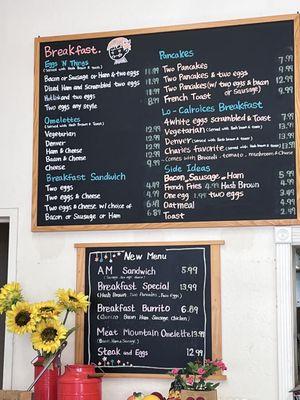 Breakfast.
Eggs 'N Things
(Served with Hash Brown & Toast)
Bacon or Sausage or Ham & two eggs 11.99
Diced Ham and Scrambled two eggs
two eggs
Two eggs any style 8.99
Omelettes
(Served with Hash Brown & Toast)
Vegetarian 12.99
Denver 12.99
Ham & Cheese 12.99
Bacon & Cheese 12.99
Cheese 9.99
Breakfast Sandwich
Two eggs 4.99
Two eggs & Cheese 4.99
Two eggs & Cheese w/ choice of
Bacon or Sausage or Ham 6.89
Pancakes
Two Pancakes 7.99
Two Pancakes & two eggs
Two Pancakes (w/ two eggs & bacon
or Sausage) 12.99
French Toast 8.99
Lo-Calroices Breakfast
4 White eggs scrambled & Toast
Vegetarian
Denver
Charles Favorite
(Comes with Broccoli - tomato, mushroom & Cheese
Side Ideas
Bacon, Sausage or Ham 5.99
French Fries 4.99 Hash Brown 4.99
One egg 1.99 two eggs
Oatmeal 4.99
Toast
New Menu
AM Sandwich 5.99
Breakfast Special 13.99
(Hash Brown Two Pancakes, Two Eggs)
Breakfast Burrito 9.99
(Bacon Ham Sausage Chicken)
Meat Mountain Omelette 13.99
(Bacon, Ham & Sausage)
Steak and Eggs 12.99